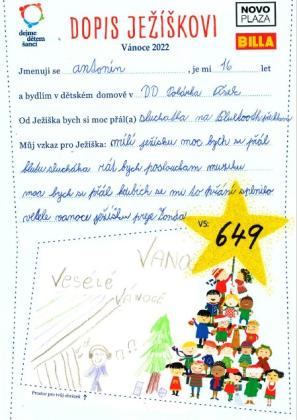 dejme dětem šanci
DOPIS JEŽÍŠKOVI
NOVO PLAZA
BILLA
Vánoce 2022
Jmenuji se antonín, je mi 16 let
a bydlím v dětském domově v DD
Od Ježíška bych si moc přál(a) sluchatka na Bluetooth
Můj vzkaz pro Ježíška: milí ježísku moc bych se přál
sluchádka rát bych posloucham muziku
moc bych se přál kdybich se mi to přání splnilo
vesele vanoce ježísku preje Tonda
VS: 649
VANOC
VESELÉ
VÁNOCE
Prostor pro tvůj obrázek ↑